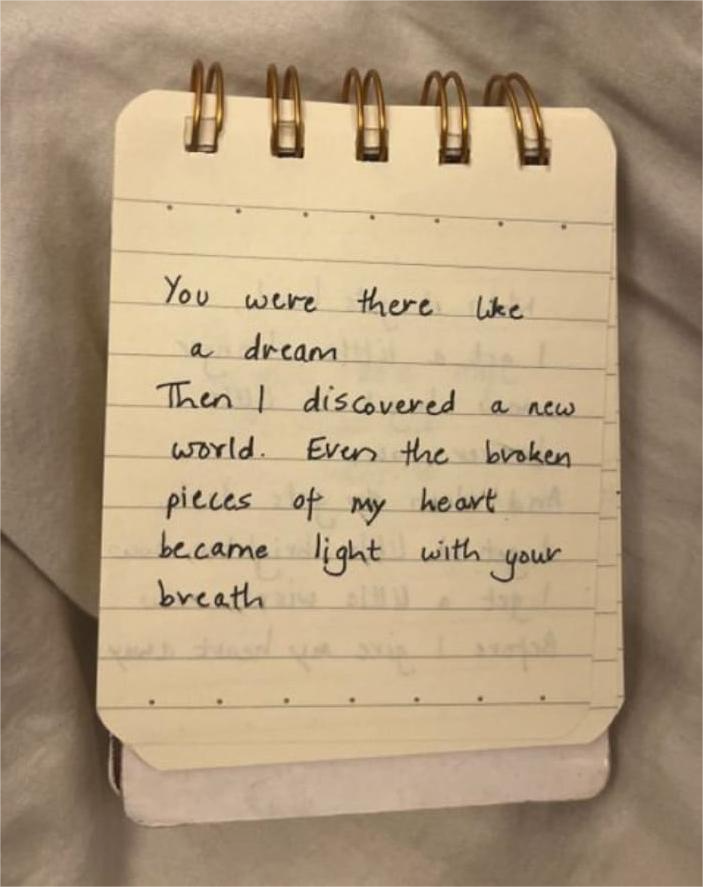 You were there like
a dream
Then I discovered a new
world. Even the broken
pieces of my heart
became light with your
breath